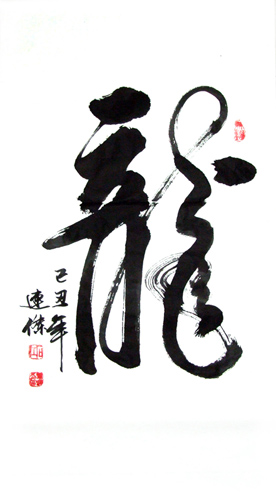 龍
己丑年
連偉